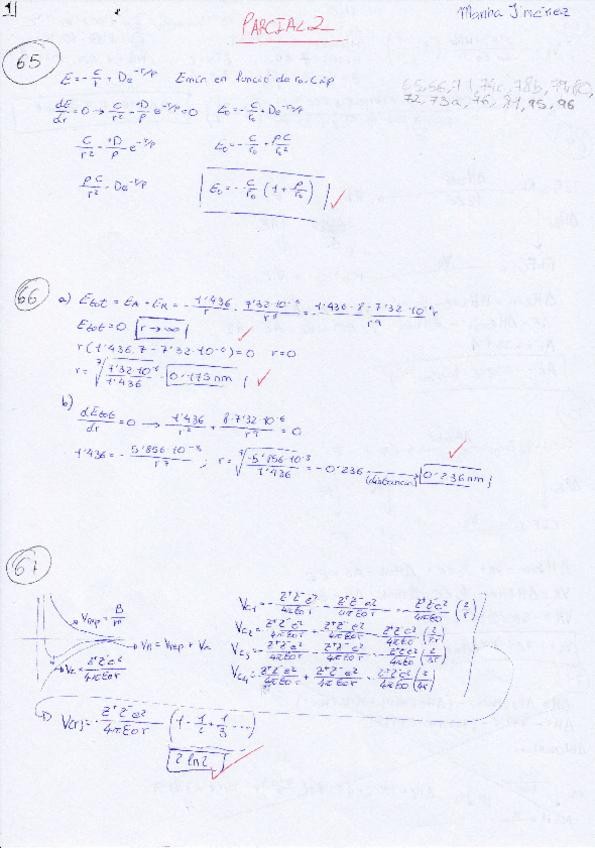 1
PARCIAL 2
Marina Jiménez
65
E = -C/r + De^-r/ρ Emin en funció de r0, C i ρ
65, 66, 71, 74c, 78b, 79, 80,
72, 73a, 76, 81, 95, 96
dE/dr = 0 → C/r² - D/ρ e^-r/ρ = 0 E0 = -C/r0 + De^-r/ρ
C/r² = D/ρ e^-r/ρ E0 = -C/r0 + ρC/r0²
ρC/r² = De^-r/ρ E0 = -C/r0 (1 + ρ/r0)
66
a) Etot = EA + ER = -1'436/r + 7'32·10^-6/r^8 = -1'436·8 - 7'32·10^-6 r/r^9
Etot = 0 r → ∞
r(1'436·7 - 7'32·10^-6) = 0 r = 0
r = ⁷√7'32·10^-6/1'436 = 0'175 nm
b)
dEtot/dr = 0 → 1'436/r² + 8·7'32·10^-6/r^9 = 0
1'436 = -5'856·10^-5/r^7 ; r = ⁷√-5'856·10^-5/1'436 = -0'236 (distancia) 0'236 nm
67
VRep = B/r^n
VR = VRep + Va
Va = Z⁺Z⁻e²/4πε0r
Vc1 = -Z⁺Z⁻e²/4πε0r - Z⁺Z⁻e²/4πε0r = -Z⁺Z⁻e²/4πε0 (2/r)
Vc2 = Z⁺Z⁻e²/4πε0r + Z⁺Z⁻e²/4πε0r = Z⁺Z⁻e²/4πε0 (2/2r)
Vc3 = -Z⁺Z⁻e²/4πε0r - Z⁺Z⁻e²/4πε0r = -Z⁺Z⁻e²/4πε0 (2/3r)
Vc4 = Z⁺Z⁻e²/4πε0r + Z⁺Z⁻e²/4πε0r = Z⁺Z⁻e²/4πε0 (2/4r)
V(r) = -Z⁺Z⁻e²/4πε0r (1 - 1/2 + 1/3 ...)
2 ln 2